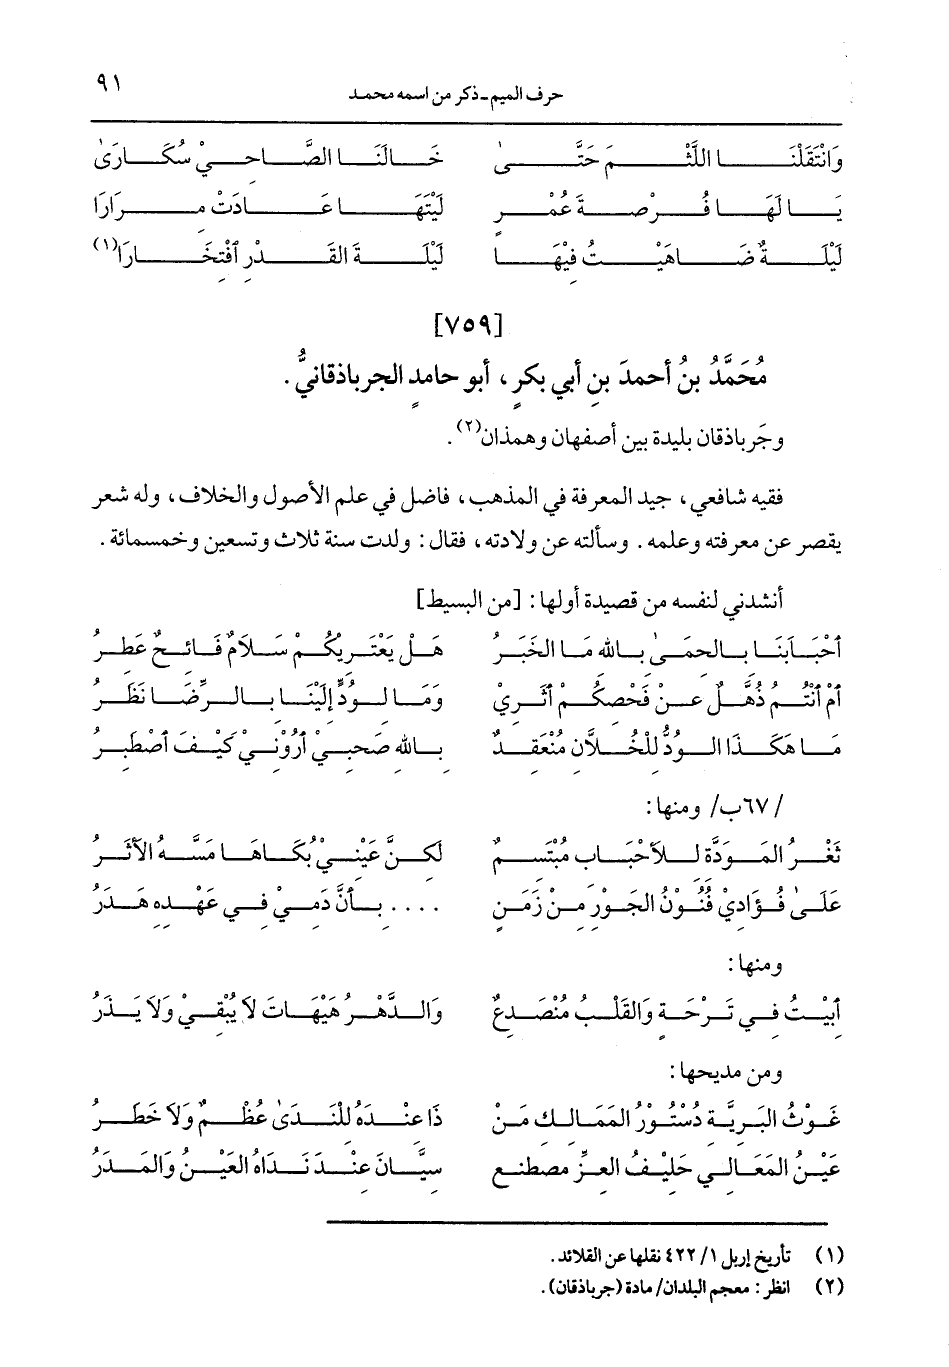 حرف الميم ـ ذكر من اسمه محمد ٩١
وَانْتَقَلْنَا اللَّثْمَ حَتَّىٰ خَالَنَا الصَّاحِيْ سُكَارَىٰ
يَا لَهَا فُرْصَةَ عُمْرٍ لَيْتَهَا عَادَتْ مِرَارَا
لَيْلَةٌ ضَاهَيْتُ فِيْهَا لَيْلَةَ القَدْرِ ٱفْتِخَارَا(١)
[٧٥٩]
مُحَمَّدُ بنُ أحمدَ بنِ أبي بكرٍ، أبو حامدٍ الجرباذقانيُّ.
وجَرباذقان بليدة بين أصفهان وهمذان(٢).
فقيه شافعي، جيد المعرفة في المذهب، فاضل في علم الأصول والخلاف، وله شعر
يقصر عن معرفته وعلمه. وسألته عن ولادته، فقال: ولدت سنة ثلاث وتسعين وخمسمائة.
أنشدني لنفسه من قصيدة أولها: [من البسيط]
أحْبَابَنَا بِالحِمَىٰ بِاللهِ مَا الخَبَرُ هَلْ يَعْتَرِيْكُمْ سَلَامٌ فَائِحٌ عَطِرُ
أمْ أنْتُمُ ذُهَّلٌ عِنْ فَحْصِكُمْ أثَرِيْ وَمَا لِوُدٍّ إِلَيْنَا بِالرِّضَا نَظَرُ
مَا هَكَذَا الوُدُّ لِلْخُلَّانِ مُنْعَقِدٌ بِاللهِ صَحبِيْ أرُوْنِيْ كَيْفَ أصْطَبِرُ
/٦٧ب/ ومنها:
ثَغْرُ المَوَدَّةِ لِلأحْبَابِ مُبْتَسِمٌ لَكِنَّ عَيْنِيْ بُكَاهَا مَسَّهُ الأثَرُ
عَلَىٰ فُؤَادِيْ فُنُوْنُ الجَوْرِ مِنْ زَمَنٍ .... بِأنَّ دَمِيْ فِي عَهْدِهِ هَدَرُ
ومنها:
أبِيْتُ فِي تَرْحَةٍ وَالقَلْبُ مُنْصَدِعٌ وَالدَّهْرُ هَيْهَاتَ لَا يُبْقِيْ وَلَا يَذَرُ
ومن مديحها:
غَوْثُ البَرِيَّةِ دُسْتُوْرُ المَمَالِكِ مَنْ ذَا عِنْدَهُ لِلْنَدَىٰ عُظْمٌ وَلَا خَطَرُ
عَيْنُ المَعَالِي حَلِيْفُ العِزِّ مصطنع سِيَّانَ عِنْدَ نَدَاهُ العَيْنُ وَالمَدَرُ
(١) تأريخ إربل ١/ ٤٢٢ نقلها عن القلائد.
(٢) انظر: معجم البلدان/ مادة (جرباذقان).